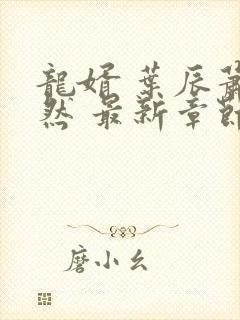 龍婿 葉辰蕭
然 最新章節
磨小幺